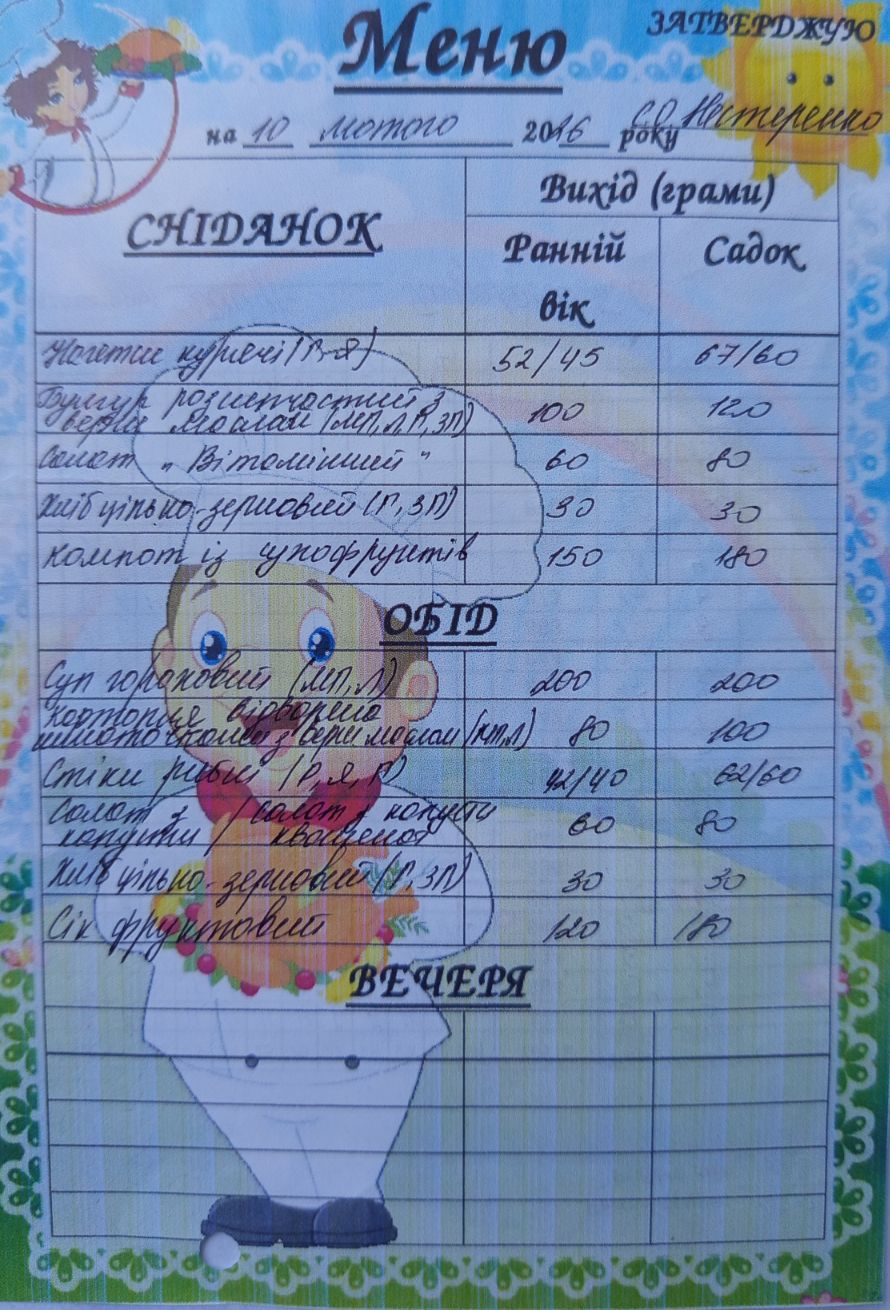 Меню
ЗАТВЕРДЖУЮ
С.О. Нестеренко
на 10 лютого 2026 року
СНІДАНОК
Вихід (грами)
Ранній вік
Садок
Нагетси курячі (Г, Я) 52/45 67/60
Булгур розсипчастий з
верш маслом (МП, Л, Г, ЗП) 100 120
Салат „Вітамінний" 60 80
Хліб цільно-зерновий (Г, ЗП) 30 30
Компот із сухофруктів 150 180
ОБІД
Суп гороховий (МП, Л) 200 200
Картопля відварена
шматочками з верш маслом (МП, Л) 80 100
Стіки рибні (Р, Я, Г) 42/40 62/60
Салат з / салат з капусти
капусти / квашеної 60 80
Хліб цільно-зерновий (Г, ЗП) 30 30
Сік фруктовий 120 180
ВЕЧЕРЯ